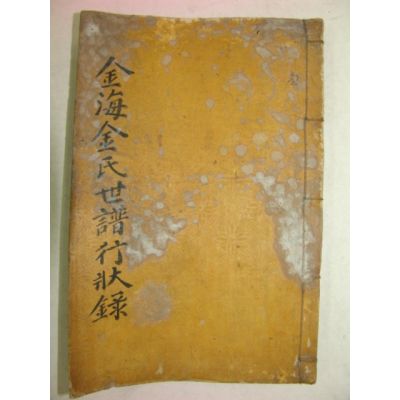 金海金氏世譜行狀錄